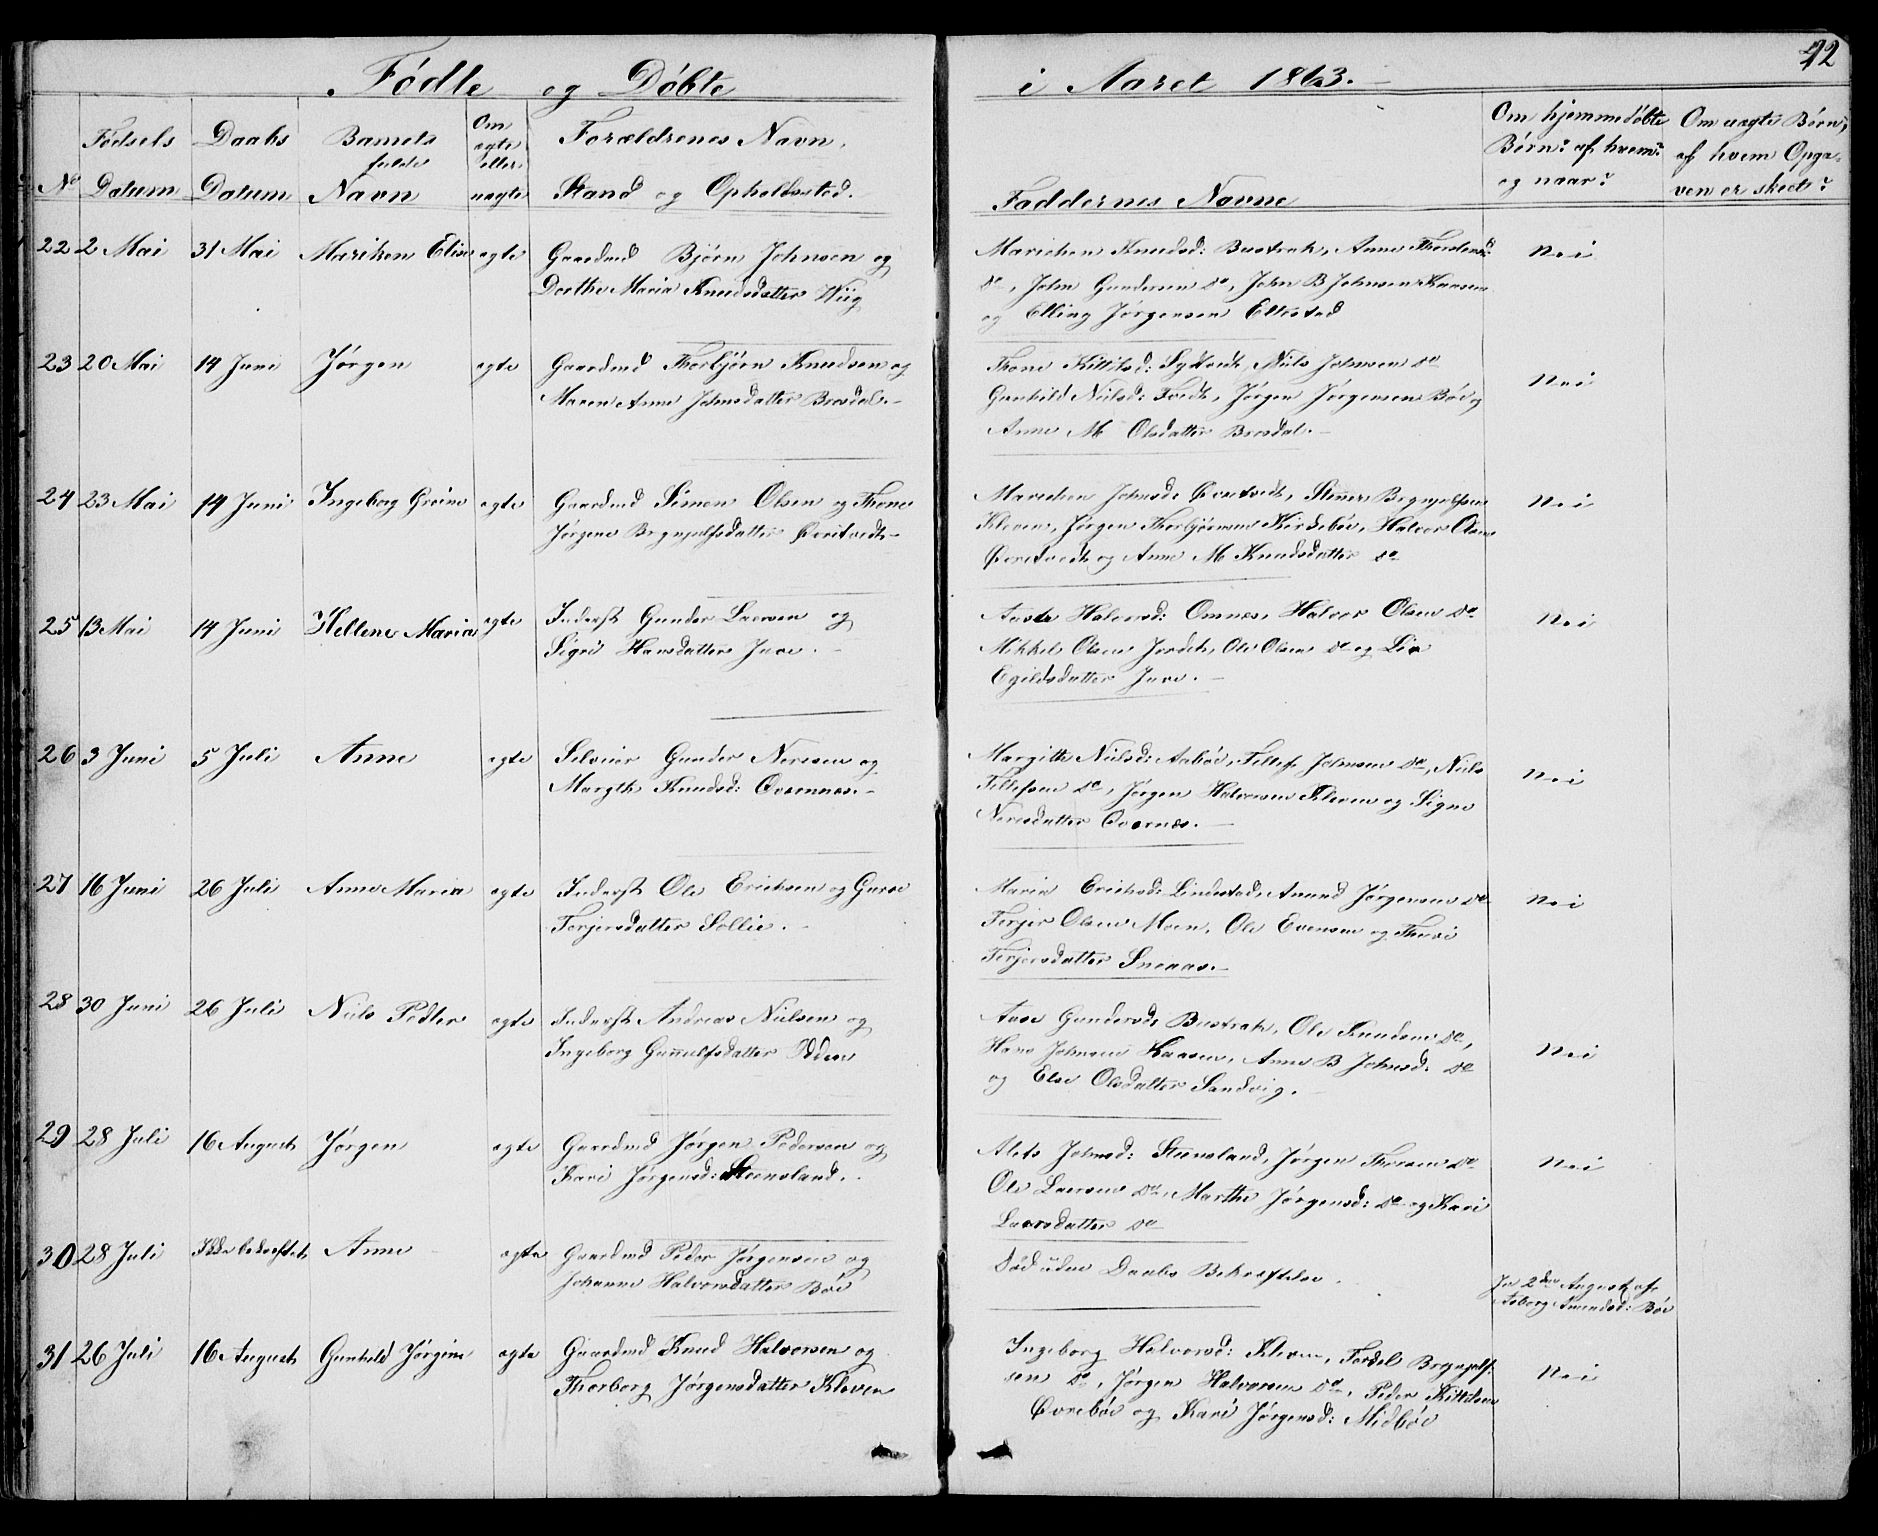 42
Födte og Döbte i Aaret 1863.
No
Fødsels Datum
Daabs Datum
Barnets fulde Navn
Om ægte eller uægte
Forældrenes Navn, Stand og Opholdssted.
Faddernes Navne
Om hjemmedöbte Börn? af hvem? og naar?
Om uægte Börn, af hvem Opgaven er skeet?
22 2 Mai 31 Mai Mariken Elise ægte Gaardmd Bjørn Johnsen og
Dorthe Maria Knudsdatter Wiig
Marichen Knudsd: Bustrak, Anne
do, John Gundersen do, John B Johnsen Kaasen
og Elling Jörgensen Eltestad
Nei
23 20 Mai 14 Juni Jörgen ægte Gaardmd Thorbjörn Knudsen og
Maren Anne Johnsdatter Brosdal.
Thone Kittilsd: Sydtvedt, Niels Johnsen do
Gunhild Nielsd: Tvedt, Jörgen Jörgensen Böe og
Anne M Olsdatter Brosdal.
Nei
24 23 Mai 14 Juni Ingeborg Grone ægte Gaardmd Simon Olsen og Thone
Jörgine Brynjulfsdatter Överтvedt
Marichen Johnsd: Steiner Brynjulfsen
Kleven, Jörgen Thorbjörnsen Kirkeböe, Halvor Olsen
og Anne M Knudsdatter do
Nei
25 13 Mai 14 Juni Hellene Maria ægte Inderst Gunder Larsen og
Sigri Hansdatter Juve.
Aaste Halvorsd: Omnes, Halvor Olsen do
Mikkel Olsen Jordet, Ole Olsen do og Liv
Egildsdatter Juve.
Nei
26 3 Juni 5 Juli Anne ægte Selveier Gunder Neresen og
Margth Knudsd: Overnæs.
Margithe Nielsd: Aaböe, Tellef Johnsen do, Niels
Tellefsen do, Jörgen Halvorsen Kleven og Signe
Neresdatter Overnæs.
Nei
27 16 Juni 26 Juli Anne Maria ægte Inderst Ole Erichsen og Guroe
Terjersdatter Sollie.
Maria Erichsd: Lindestad, Amund Jörgensen do
Terjer Olsen Moen, Ole Evensen og Thuri
Terjersdatter Sneaas.
Nei
28 30 Juni 26 Juli Niels Pedter ægte Inderst Andreas Nielsen og
Ingeborg Gunnulfsdatter Odden
Aase Gundersd: Bustrak, Ole Knudsen do,
Hans Johnsen Kaasen, Anne B Johnsd: do
og Else Olsdatter Sandvig.
Nei
29 28 Juli 16 August Jörgen ægte Gaardmd Jörgen Pedersen og
Kari Jörgensd: Steensland.
Alets Johnsd: Steensland, Jörgen Thorsen do
Ole Larsen do, Marthe Jörgensd: do og Kari
Larsdatter do
Nei
30 28 Juli Ikke bekræftet Anne ægte Gaardmd Peder Jörgensen og
Johanne Halvorsdatter Böe
Död uden Daabs Bekræftelse.
Ja 2den August af
Asborg Amundsd: Böe
31 26 Juli 16 August Gunhild Jörgine ægte Gaardmd Knud Halvorsen og
Thorborg Jörgensdatter Kleven
Ingeborg Halvorsd: Kleven, Tordel Brynjulf-
sen do, Jörgen Halvorsen do, Peder Kittilsen
Övreböe og Kari Jörgensd: Midböe
Nei